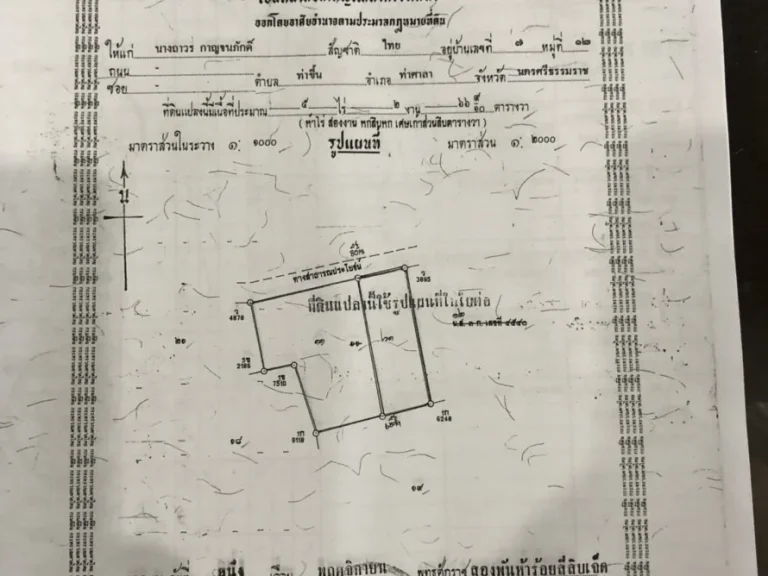 ออกโดยอาศัยอำนาจตามประมวลกฎหมายที่ดิน
ให้แก่ นางถาวร กาญจนภักดิ์ สัญชาติ ไทย อยู่บ้านเลขที่ ๗ หมู่ที่ ๑๒
ถนน - ซอย - ตำบล ท่าขึ้น อำเภอ ท่าศาลา จังหวัด นครศรีธรรมราช
ที่ดินแปลงนี้มีเนื้อที่ประมาณ ๕ ไร่ ๒ งาน ๖๖ ๙/๑๐ ตารางวา
( ห้าไร่ สองงาน หกสิบหก เศษเก้าส่วนสิบตารางวา )
มาตราส่วนในระวาง ๑: ๑๐๐๐ รูปแผนที่ มาตราส่วน ๑: ๒๐๐๐
น
ทางสาธารณประโยชน์
3885
4878
ที่ดินแปลงนี้ใช้รูปแผนที่ในใบต่อ
น.ส. ๓ ก. เลขที่ ๔๕๔๐
๒๑
๑๑
2186
7510
9119
6248
๑๘
๑๙
หนึ่ง เดือน พฤศจิกายน พุทธศักราช สองพันห้าร้อยสี่สิบเจ็ด